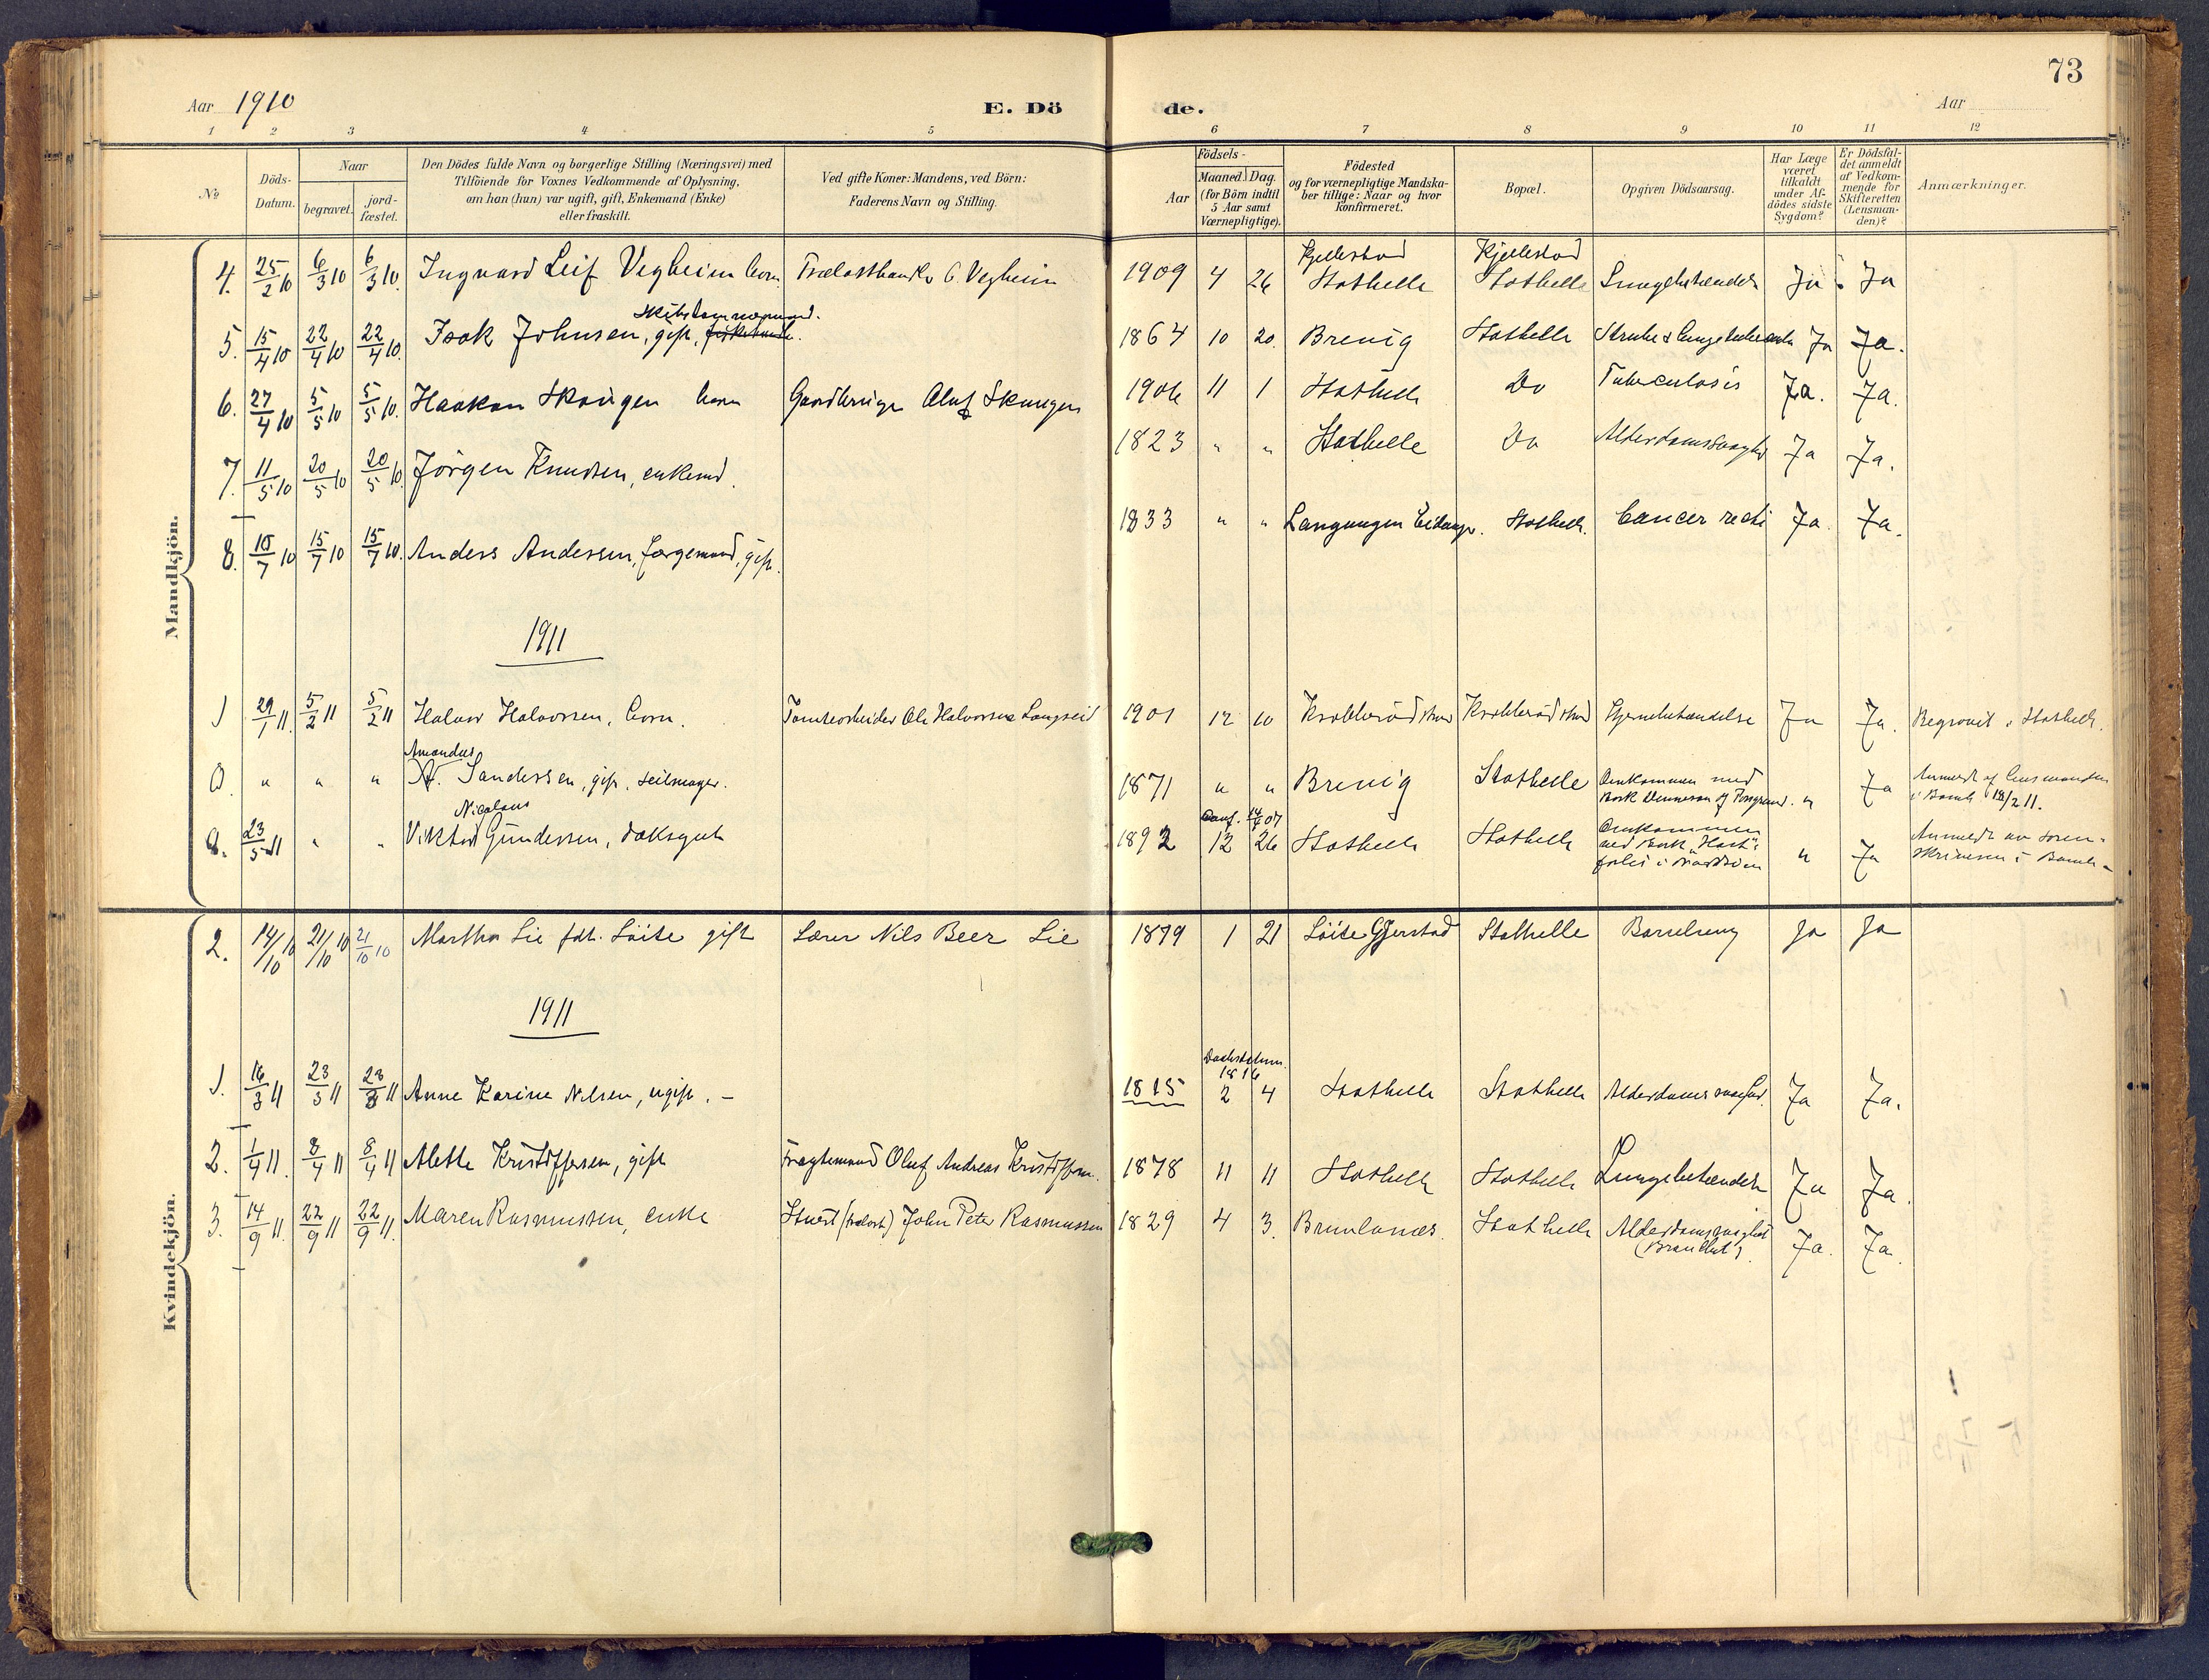 73
Aar 1910
E. Dö
de.
Aar
1 2 3 4 5 6 7 8 9 10 11 12
No
Döds-Datum.
Naar
begravet.
jord-fæstet.
Den Dödes fulde Navn og borgerlige Stilling (Næringsvei) med
Tilföiende for Voxnes Vedkommende af Oplysning,
om han (hun) var ugift, gift, Enkemand (Enke)
eller fraskilt.
Ved gifte Koner: Mandens, ved Börn:
Faderens Navn og Stilling.
Födsels-
Aar
Maaned. Dag.
(for Börn indtil
5 Aar samt
Værnepligtige).
Födested
og for værnepligtige Mandska-
ber tillige: Naar og hvor
konfirmeret.
Bopæl.
Opgiven Dödsaarsag.
Har Læge
været
tilkaldt
under Af-
dödes sidste
Sygdom?
Er Dödsfal-
det anmeldt
af Vedkom-
mende for
Skifteretten
(Lensman-
den)?
Anmærkninger.
Mandkjön.
Kjellestad Kjellestad
4. 25/2 10 6/3 10 6/3 10. Ingvard Leif Vegheim barn Trælasthandler C. Vegheim 1909 4 26 Stathelle Stathelle Lungebetændelse Ja Ja
5. 15/4 10 22/4 10 22/4 10. Isak Johnsen, gift, Skibstømmermand. 1864 10 20. Brevig Stathelle Ja Ja.
6. 27/4 10 5/5 10 5/5 10. Haakon Skougen barn Gaardbruger Oluf Skougen 1906 11 1 Stathelle Do Tuberculosis Ja. Ja.
7. 11/5 10 20/5 10 20/5 10 Jörgen Knudsen, enkemd. 1823 " " Stathelle Do Alderdomssvaghed Ja Ja.
8. 10/7 10 15/7 10 15/7 10. Anders Andersen, færgemand, gift. 1833 " " Langangen Eidanger. Stathelle. Cancer recti Ja Ja.
1911
1 29/1 11. 5/2 11 5/2 11 Halvor Halvorsen, barn. Tomtearbeider Ole Halvorsen Langseid 1901 12 10 Krabberødstrand Krabberødstrand Hjernebetændelse Ja Ja. Begravet i Stathelle.
Amandus
0. " " " N. Sandersen, gift, seilmager. 1871 " " Brevig Stathelle Omkommen med
Bark of Porsgrund. " Ja Anmeldt af lensmanden
i Bamble 18/2 11.
Nicolaus
0. 23/5 11 " " Viktor Gundersen, daksgut 1892 12 26 Stathelle Stathelle Omkommen
ved Bark
" Ja Anmeldt av soren-
skriveren i Bamble
Kvindekjön.
2. 14/10 10 21/10 10 21/10 10 Martha Lie födt. Löite gift Lærer Nils Beer Lie 1879 1 21 Löite Gjerstad Stathelle Barselseng Ja Ja
1911
1. 16/3 11 23/3 11 23/3 11 Anne Karine Nilsen, ugift. - 1815 1816 2 4 Stathelle Stathelle Alderdomssvaghed. Ja Ja.
2. 1/4 11. 8/4 11 8/4 11 Alette Kristoffersen, gift Fragtemand Oluf Andreas Kristoffersen. 1878 11 11 Stathelle Stathelle Lungebetændelse Ja Ja.
3. 14/9 11. 22/9 11 22/9 11. Maren Rasmussen, enke John Peter Rasmussen 1829 4 3. Brunlanæs. Stathelle Alderdomssvaghed
Ja. Ja.